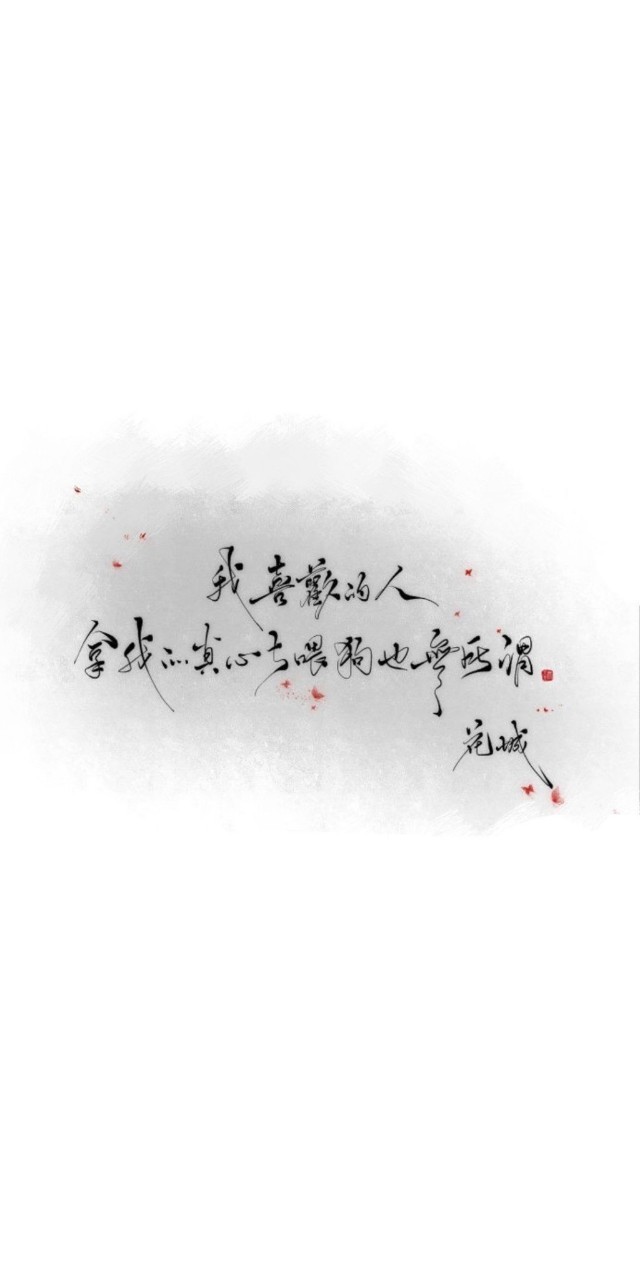 我喜歡的人
拿我的真心去喂狗也無所謂
花城